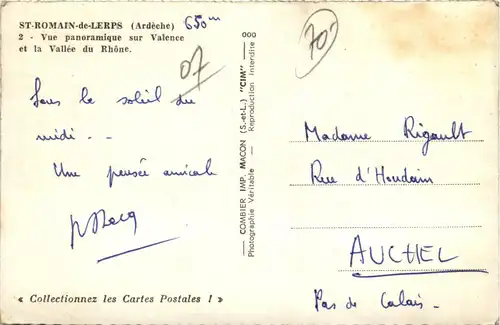 ST-ROMAIN-de-LERPS (Ardèche) 650m
2 - Vue panoramique sur Valence
et la Vallée du Rhône.
07
Sous le soleil du
midi . .
Une pensée amicale
« Collectionnez les Cartes Postales ! »
000
COMBIER IMP. MACON (S.-et-L.) "CIM"
Photographie Véritable — Reproduction interdite
70-
Madame Rigault
Rue d'Houdain
AUCHEL
Pas de Calais.